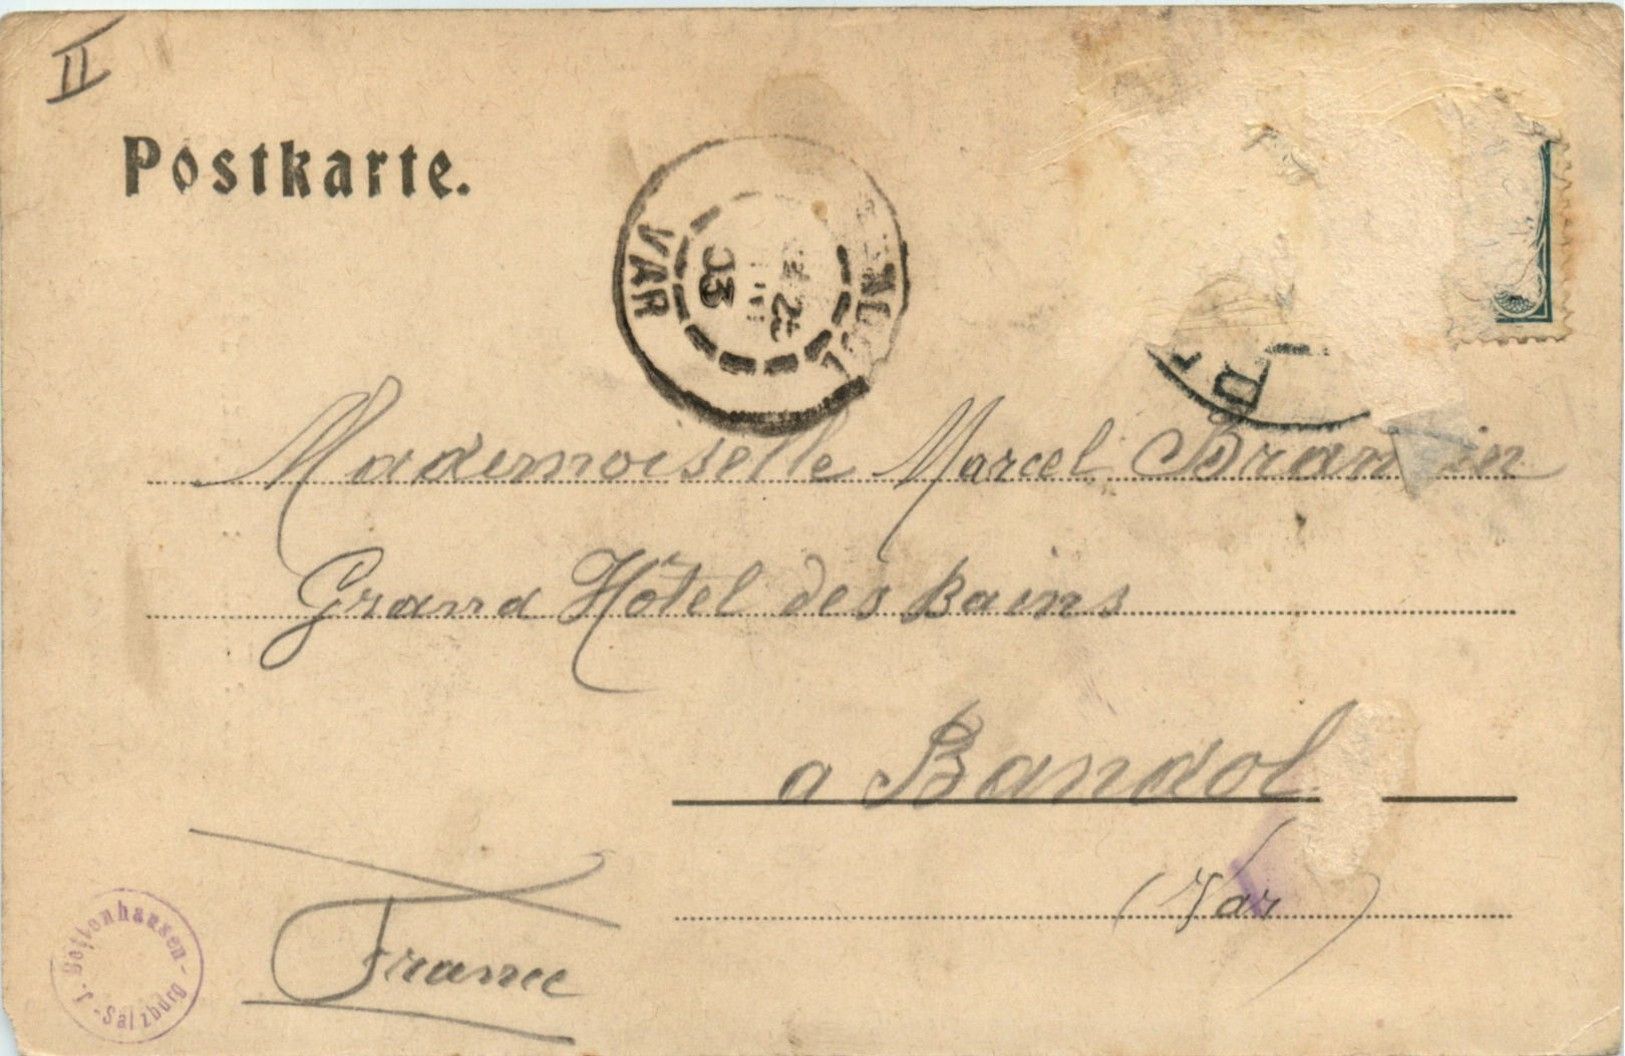 II
Postkarte.
VAR
03
Mademoiselle Marcel
Grand Hôtel des Bains
a Bandol
(Var)
France
J. Bettenhausen - Salzburg